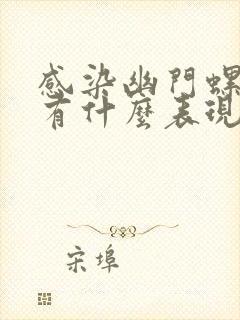 感染幽門螺
有什麼表現
宋埠